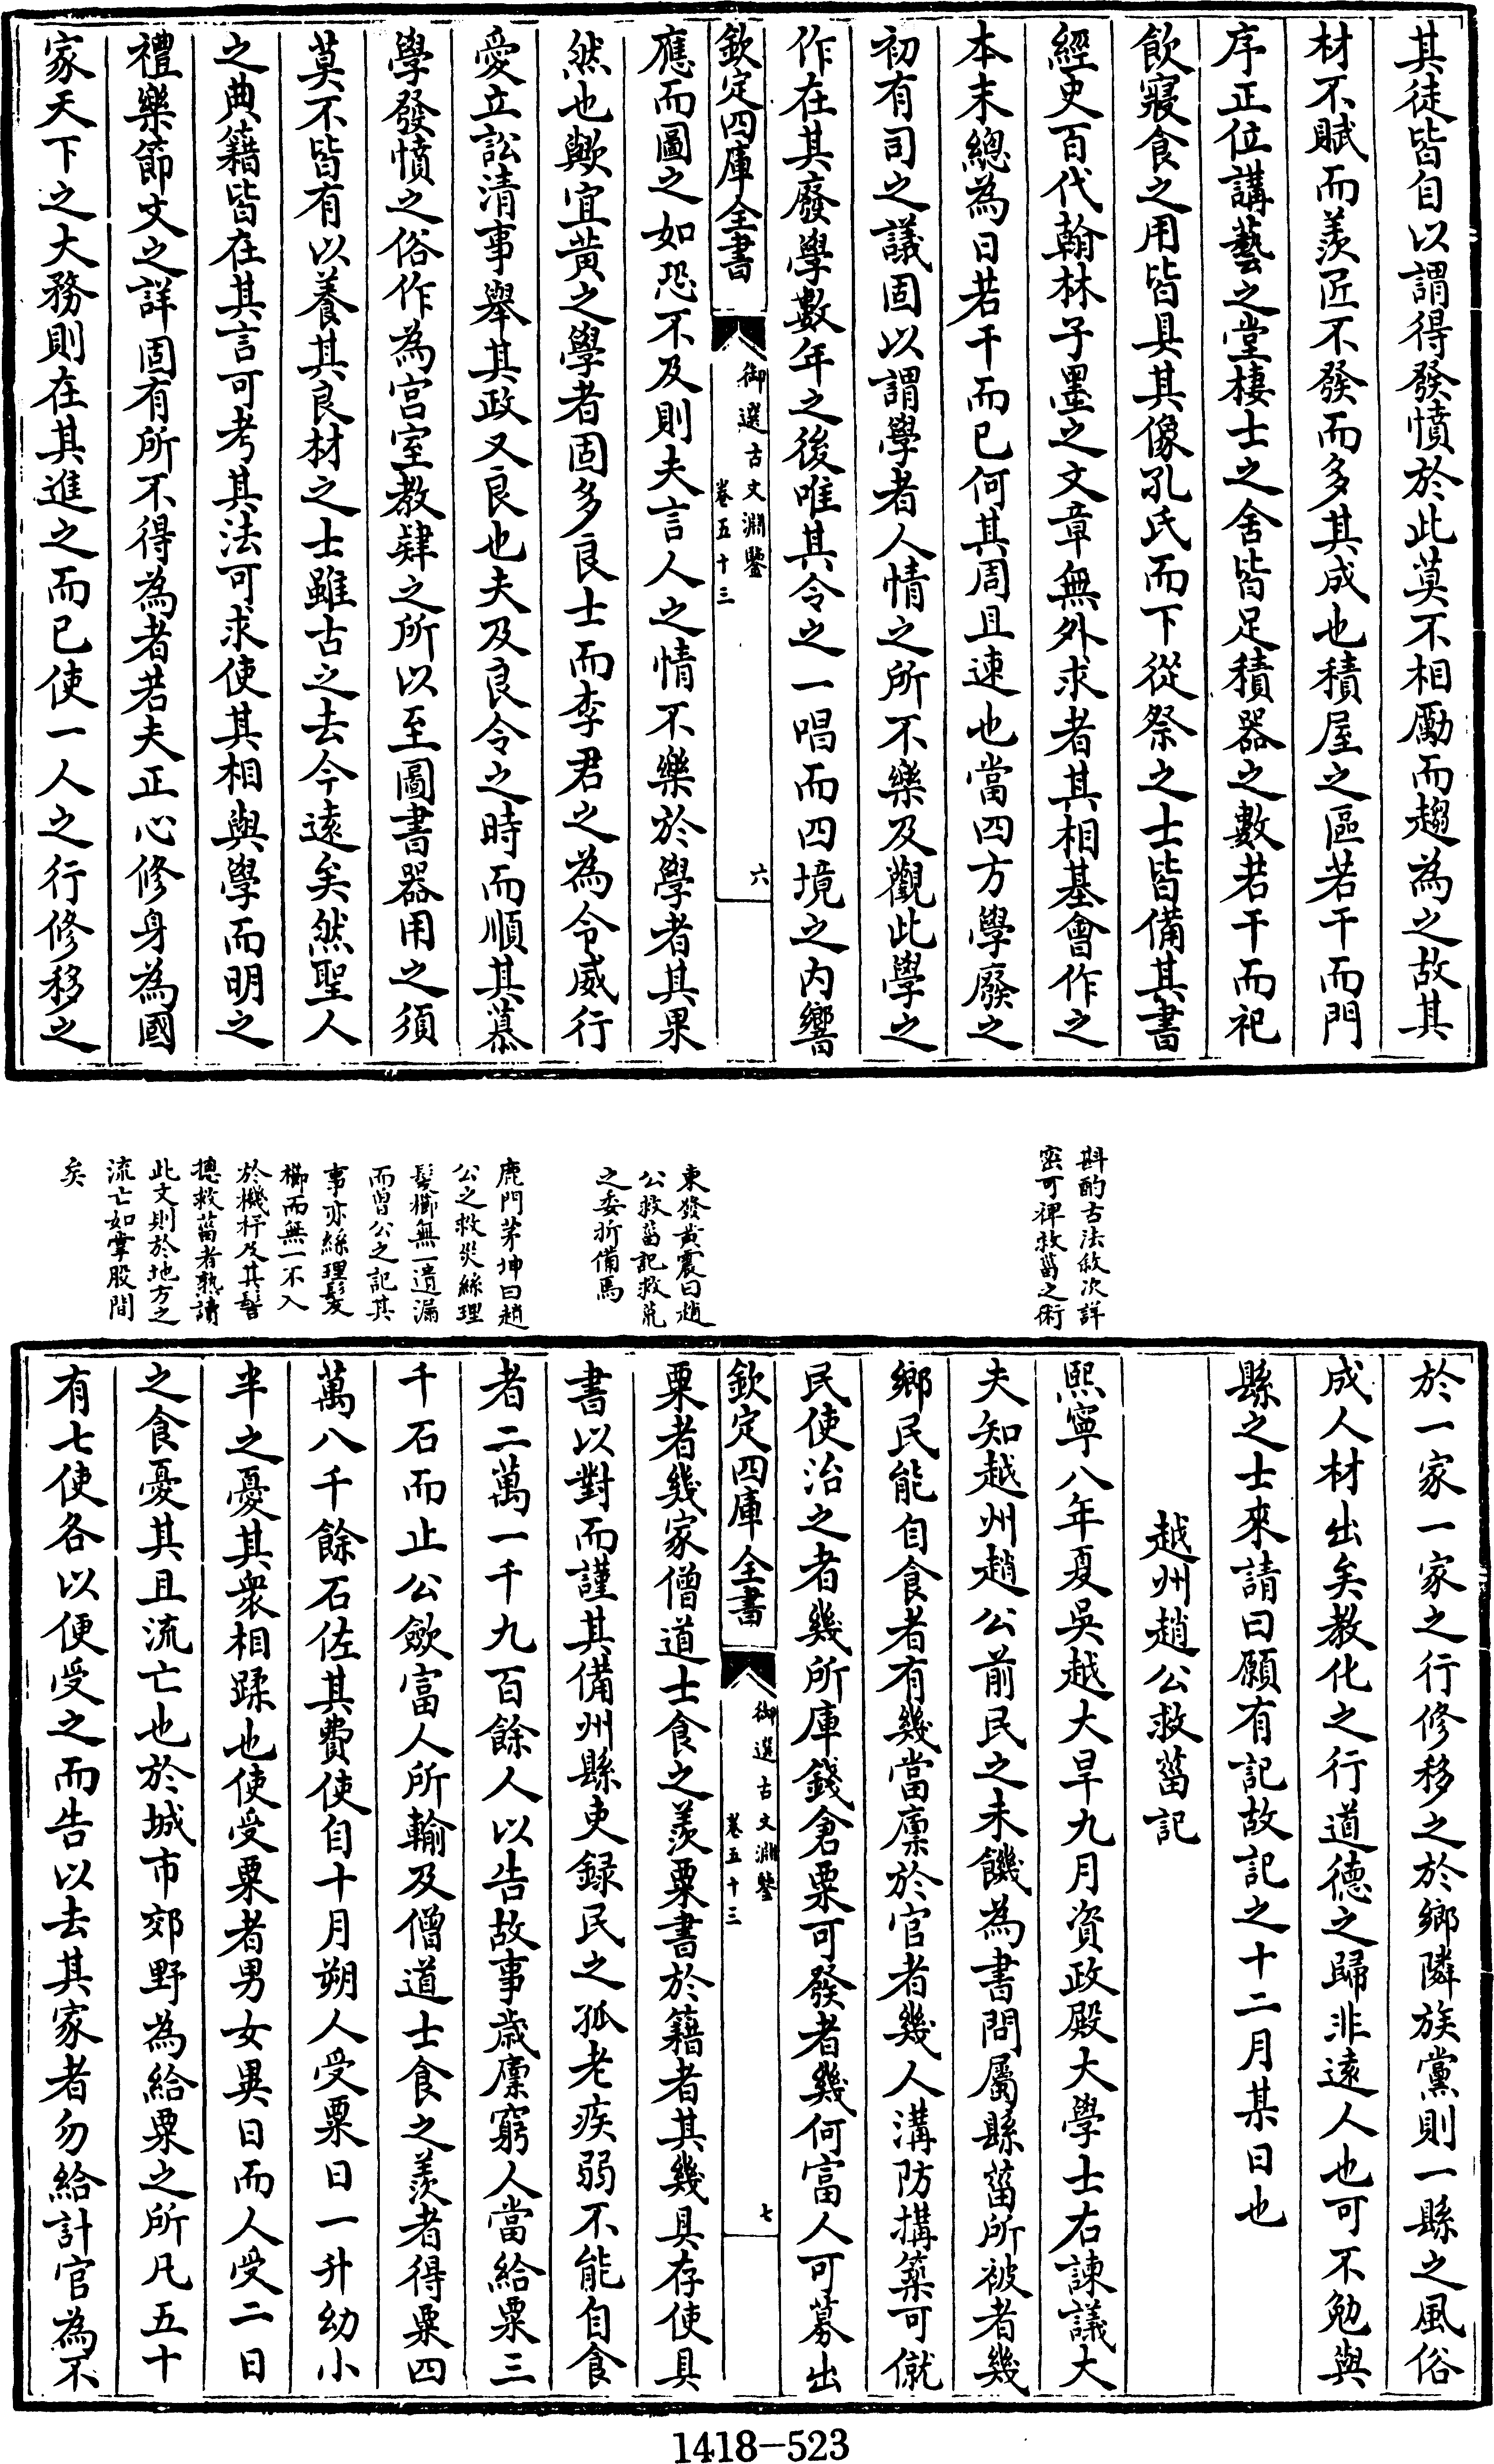 其徒皆自以謂得發憤於此莫不相勵而趨為之故其
材不賦而羨匠不發而多其成也積屋之區若干而門
序正位講藝之堂棲士之舍皆足積器之數若干而祀
飲寢食之用皆具其像孔氏而下從祭之士皆備其書
經史百代翰林子墨之文章無外求者其相基會作之
本末總為日若干而已何其周且速也當四方學廢之
初有司之議固以謂學者人情之所不樂及觀此學之
作在其廢學數年之後唯其令之一唱而四境之内響
欽定四庫全書
御選古文淵鑒
卷五十三
六
應而圖之如恐不及則夫言人之情不樂於學者其果
然也歟宜黄之學者固多良士而李君之為令威行
愛立訟清事舉其政又良也夫及良令之時而順其慕
學發憤之俗作為宫室教肄之所以至圖書器用之須
莫不皆有以養其良材之士雖古之去今遠矣然聖人
之典籍皆在其言可考其法可求使其相與學而明之
禮樂節文之詳固有所不得為者若夫正心修身為國
家天下之大務則在其進之而已使一人之行修移之
斟酌古法敘次詳
密可裨救菑之術
東發黄震曰趙
公救菑記救荒
之委折備焉
鹿門茅坤曰趙
公之救災絲理
髮櫛無一遺漏
而曾公之記其
事亦絲理髮
櫛而無一不入
於機杼及其髻
摠救菑者熟讀
此文則於地方之
流亡如掌股間
矣
於一家一家之行修移之於鄉隣族黨則一縣之風俗
成人材出矣教化之行道德之歸非遠人也可不勉與
縣之士來請曰願有記故記之十二月某日也
越州趙公救菑記
熙寧八年夏吳越大旱九月資政殿大學士右諫議大
夫知越州趙公前民之未饑為書問屬縣菑所被者幾
鄉民能自食者有幾當廪於官者幾人溝防搆築可僦
民使治之者幾所庫錢倉粟可發者幾何富人可募出
欽定四庫全書
御選古文淵鑒
卷五十三
七
粟者幾家僧道士食之羨粟書於籍者其幾具存使具
書以對而謹其備州縣吏録民之孤老疾弱不能自食
者二萬一千九百餘人以告故事歲廪窮人當給粟三
千石而止公歛富人所輸及僧道士食之羨者得粟四
萬八千餘石佐其費使自十月朔人受粟日一升幼小
半之憂其衆相蹂也使受粟者男女異日而人受二日
之食憂其且流亡也於城市郊野為給粟之所凡五十
有七使各以便受之而告以去其家者勿給計官為不
1418-523